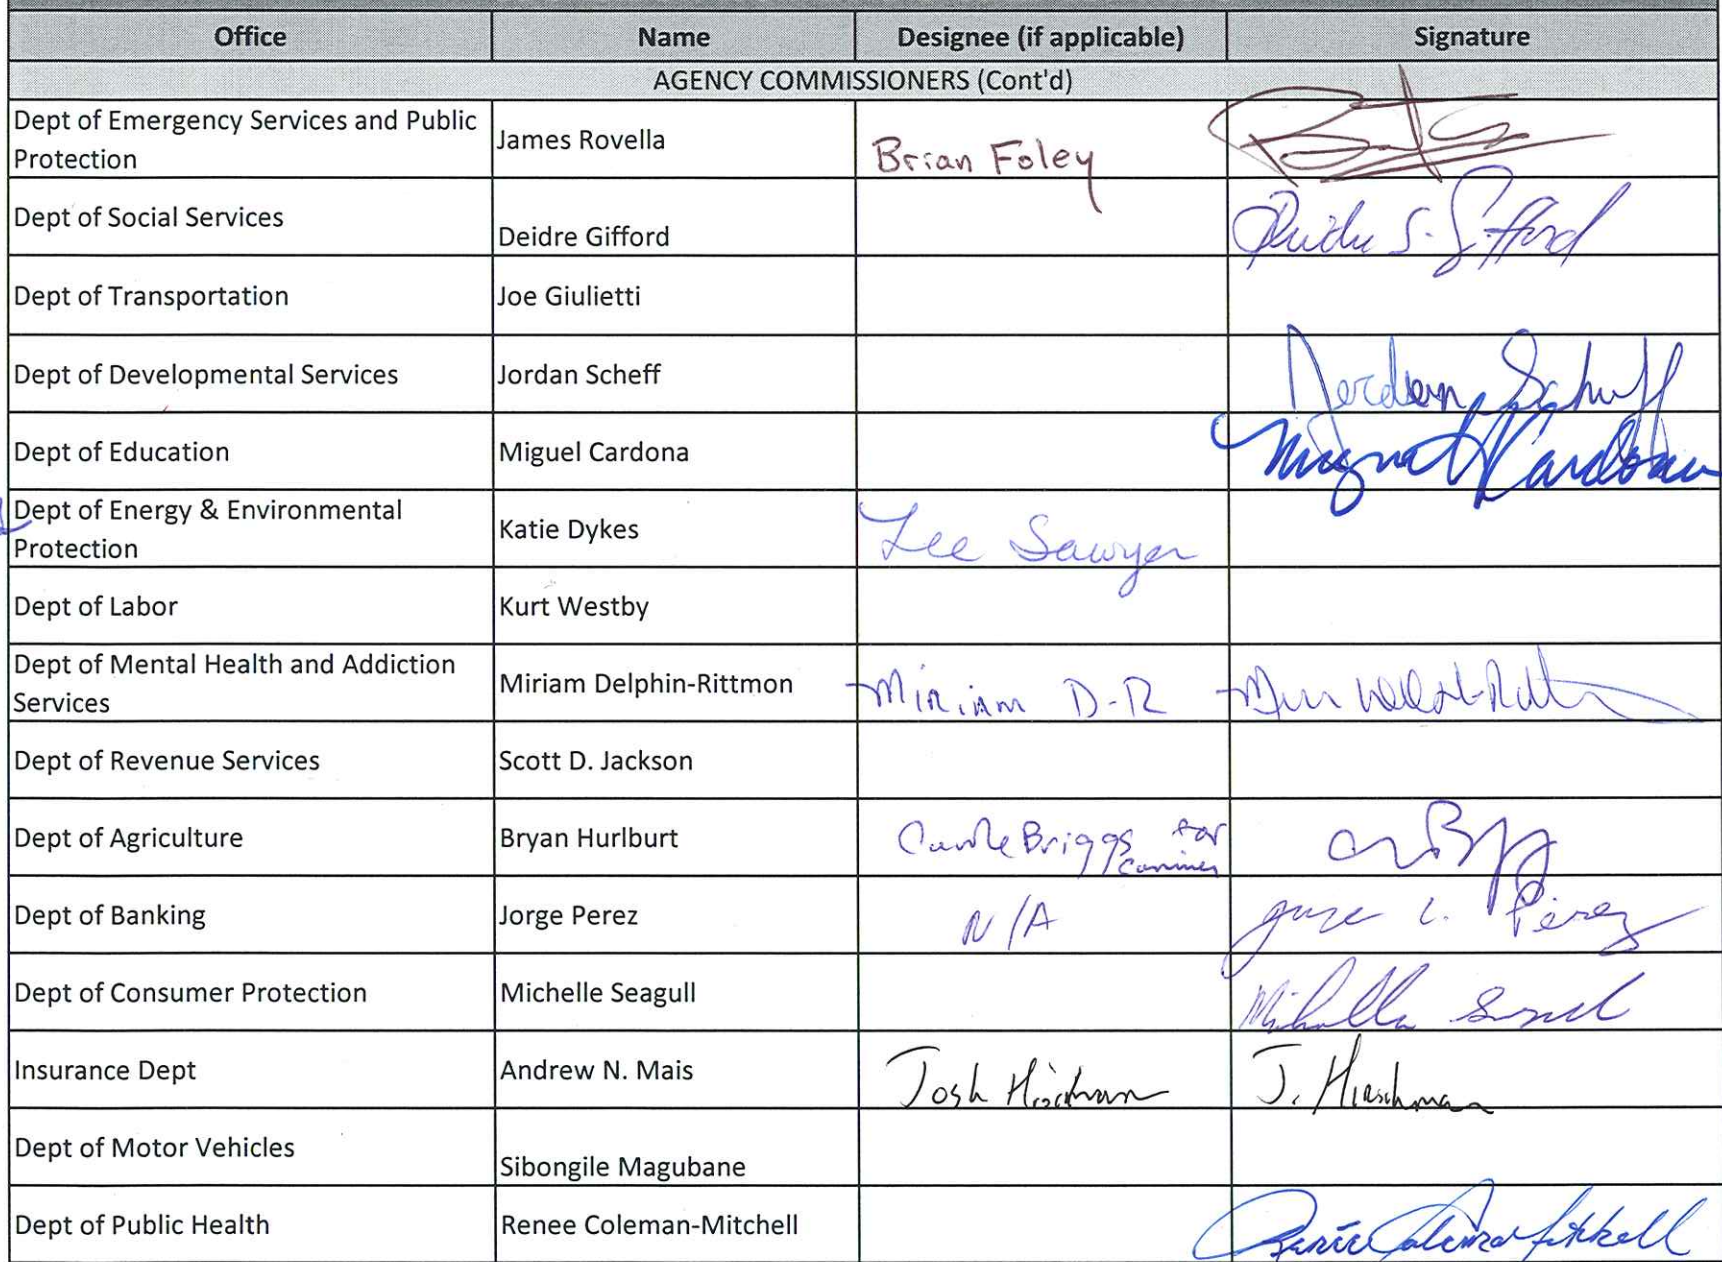 Office Name Designee (if applicable) Signature
AGENCY COMMISSIONERS (Cont'd)
Dept of Emergency Services and Public
Protection
James Rovella
Brian Foley
Dept of Social Services
Deidre Gifford
Deidre S. Gifford
Dept of Transportation
Joe Giulietti
Dept of Developmental Services
Jordan Scheff
Jordan Scheff
Dept of Education
Miguel Cardona
Miguel Cardona
Dept of Energy & Environmental
Protection
Katie Dykes
Lee Sawyer
Dept of Labor
Kurt Westby
Dept of Mental Health and Addiction
Services
Miriam Delphin-Rittmon
Miriam D-R
Dept of Revenue Services
Scott D. Jackson
Dept of Agriculture
Bryan Hurlburt
Carole Briggs for
Dept of Banking
Jorge Perez
N/A
Jorge L. Perez
Dept of Consumer Protection
Michelle Seagull
Michelle Seagull
Insurance Dept
Andrew N. Mais
Josh Hirschman
J. Hirschman
Dept of Motor Vehicles
Sibongile Magubane
Dept of Public Health
Renee Coleman-Mitchell
Renée Coleman-Mitchell